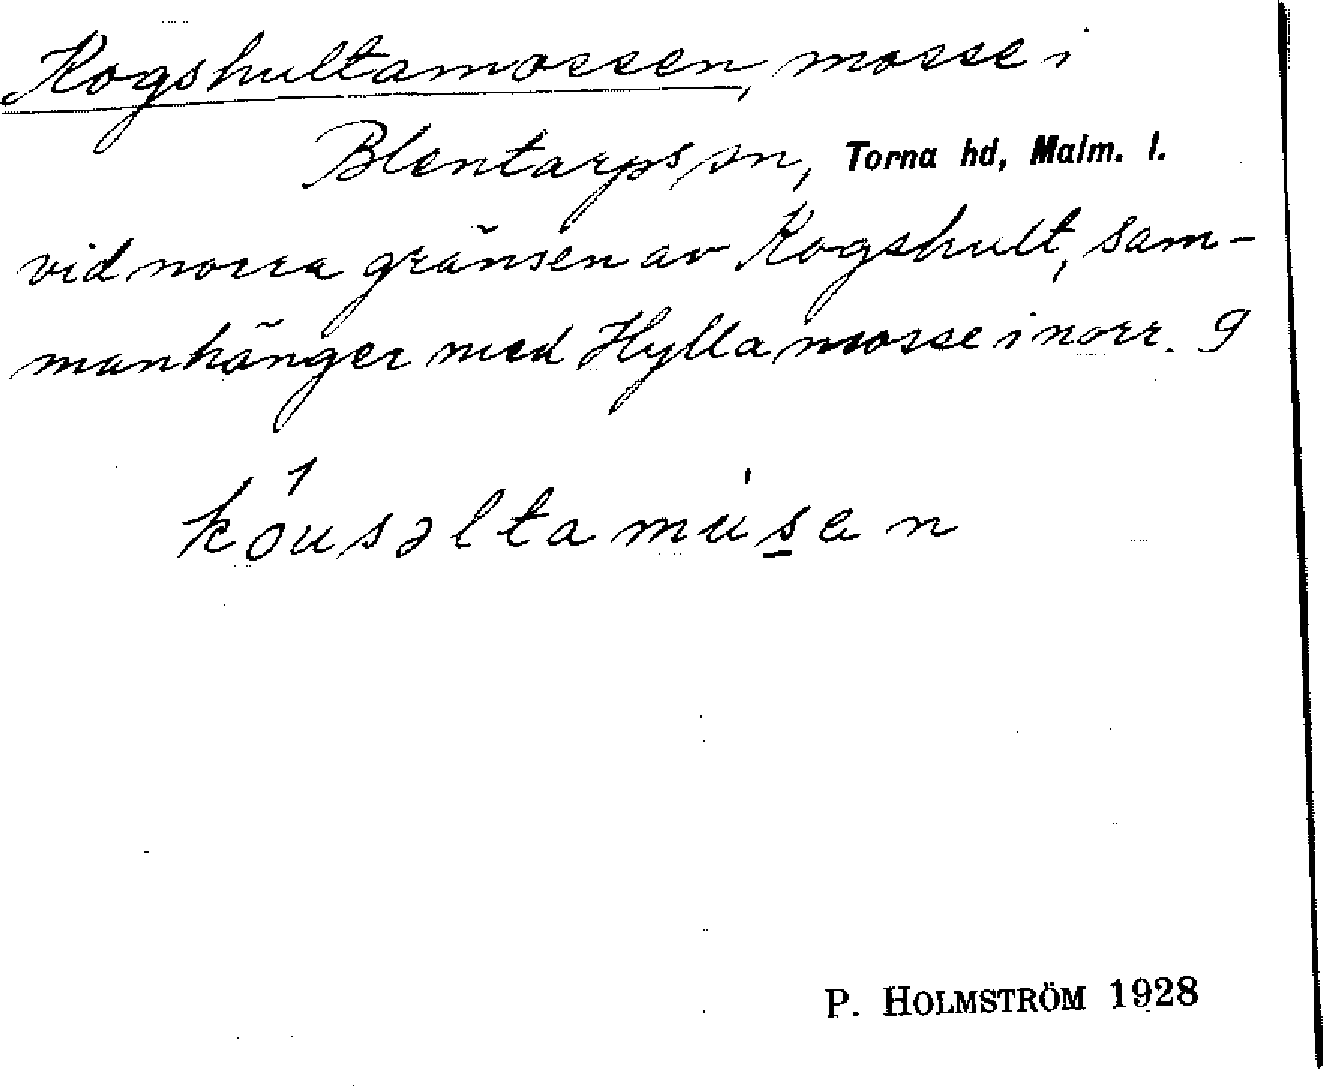 Kogshultamossen, mosse i
Blentarps sn, Torna hd, Malm. l.
vid norra gränsen av Kogshult, sam-
manhänger med Hylla mosse i norr. g
kousəltamusen
P. HOLMSTRÖM 1928